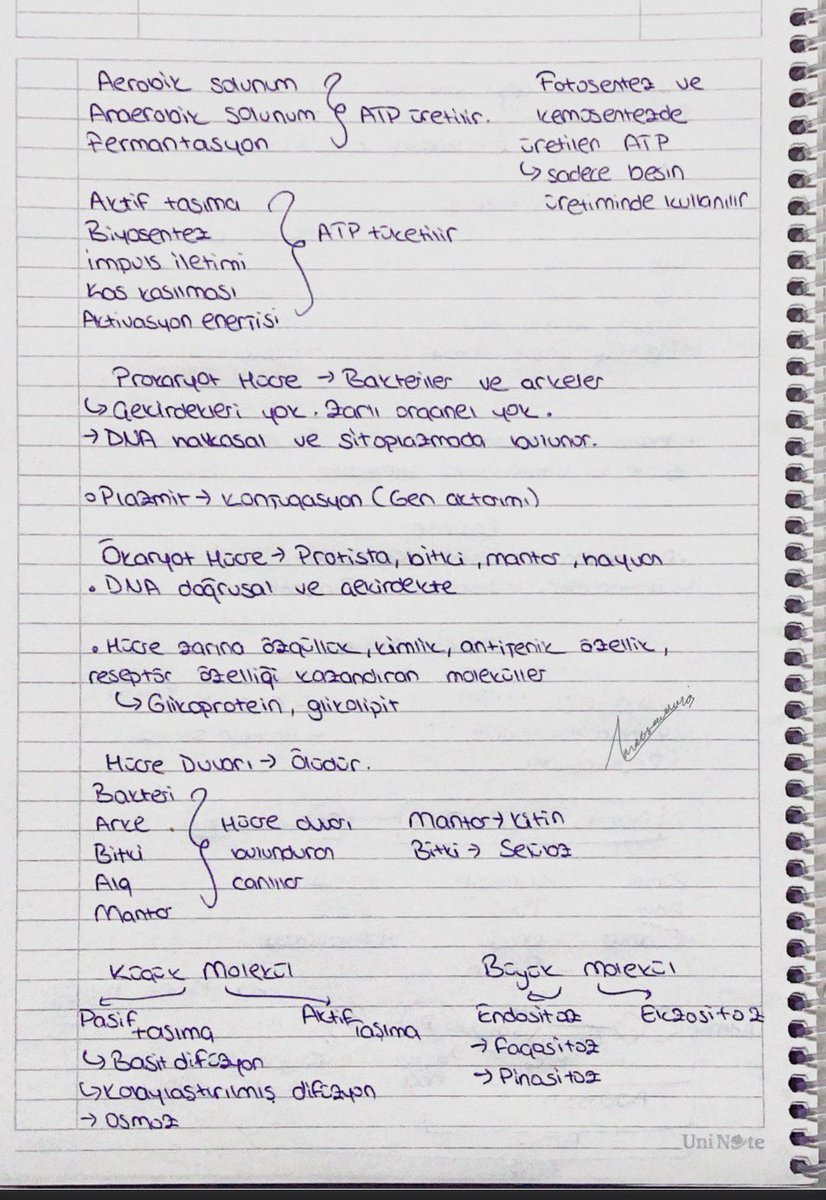 Aerobik solunum
Anaerobik solunum
Fermantasyon
ATP üretilir.
Fotosentez ve
kemosentezde
üretilen ATP
↳ sadece besin
üretiminde kullanılır
Aktif taşıma
Biyosentez
impuls iletimi
Kas kasılması
Aktivasyon enerjisi
ATP tüketilir
Prokaryot Hücre → Bakteriler ve arkeler
↳ Çekirdekleri yok. Zarlı organel yok.
→ DNA halkasal ve sitoplazmada bulunur.
○ Plazmit → Konjugasyon (Gen aktarımı)
Ökaryot Hücre → Protista, bitki, mantar, hayvan
• DNA doğrusal ve çekirdekte
• Hücre zarına özgüllük, kimlik, antijenik özellik,
reseptör özelliği kazandıran moleküller
↳ Glikoprotein, glikolipit
Hücre Duvarı → Ölüdür.
Bakteri
Arke
Bitki
Alg
Mantar
Hücre duvarı
bulunduran
canlılar
Mantar → Kitin
Bitki → Selüloz
Küçük Molekül
Pasif taşıma
↳ Basit difüzyon
↳ Kolaylaştırılmış difüzyon
→ Osmoz
Aktif taşıma
Büyük Molekül
Endositoz
→ Fagositoz
→ Pinositoz
Ekzositoz
UniNote